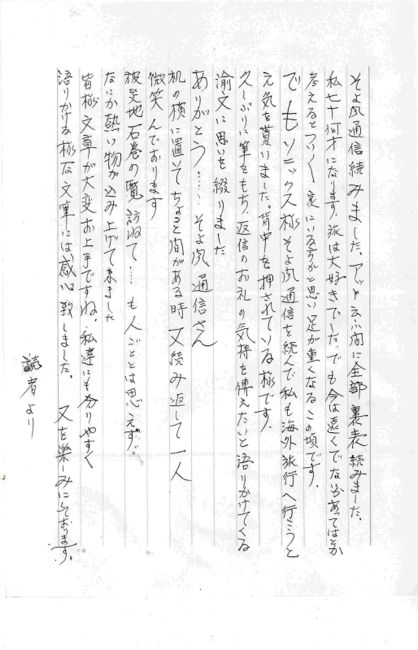 そよ風通信読みました。アッと云ふ間に全部裏表読みました。
私七十何才になります。旅は大好きでした。でも今は遠くでないかあてはとか
考えるとつくづく家にいる方がと思い足が重くなるこの頃です。
でもソニックス様そよ風通信を読んで私も海外旅行へ行こうと
元気を貰いました。背中を押されている様です。
久しぶりに筆をもち、返信のお礼の気持を傳えたいと語りかけてくる
渝文に思いを綴りました
ありがとう……そよ風通信さん
机の横に置いてちょっと間がある時又読み返して一人
微笑んでおります
被災地石巻の覧 訪ねて…も人ごととは思えず、
なにか熱い物が込み上げて来ました
皆様文章が大変お上手ですね、私達にも分りやすく
語りかける様な文章には感心致しました。又を楽しみにしております。
読者より